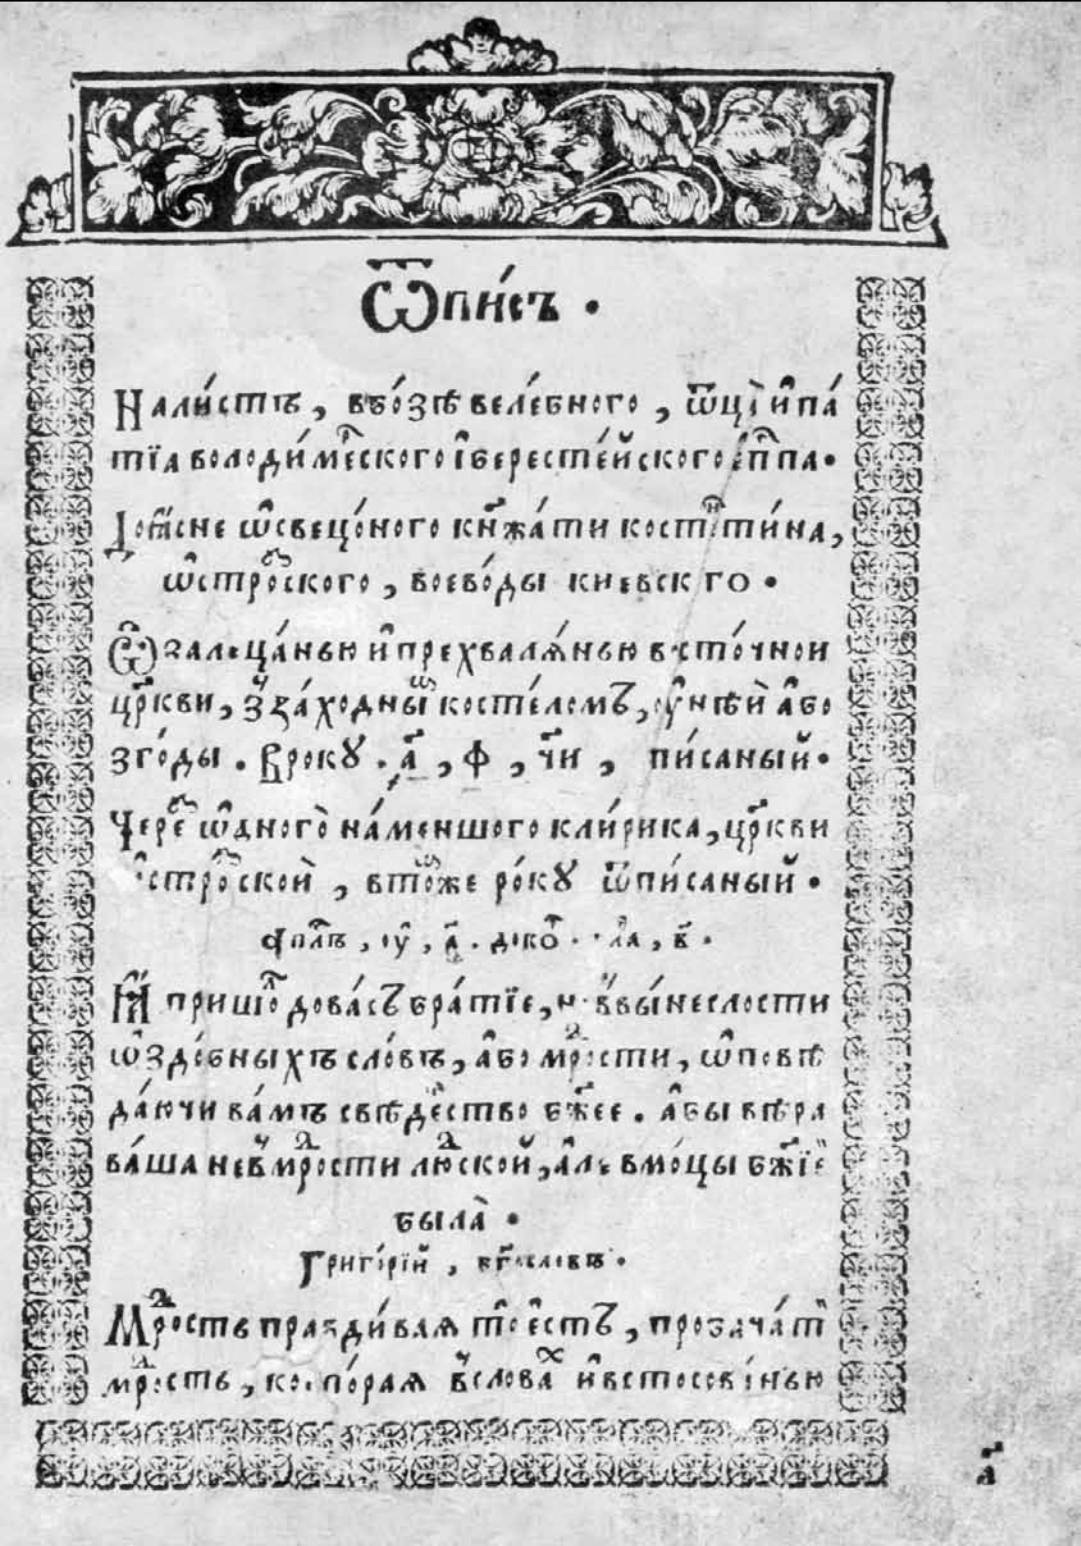 Ѿпи́съ •
На ли́стъ , въ бо́зѣ веле́бного , ѿца̀ и҆па́
тїа володи́мⷬеского і҆ берестéйского є҆пⷭ҇па •
До ꙗ҆́сне ѡ҆свецо́ного кнѧжа́ти костⷩѧти́на ,
ѡ҆стро́ⷤского , воево́ды киевского •
Ѡ҆ залеца́нью и҆ прехвалѧ́нью въсто́чной
цр҃кви , зза́ходныⷨ косте́ломъ , ѹ҆нѣѝ а҆бо
зго́ды . В року . ҂а҃ , ф , ч҃и , пи́саный •
Череⷥ ѡ҆дного̀ на́меншого кли́рика , цр҃кви
ѡ҆стро́ⷤской , в тоⷨже ро́ку ѿпи́саный •
а҃ .
И҆ пришоⷧ до ва́съ бра́тїе , не в вы́неслости
ѡ҆здо́бныхъ сло́въ , а҆бо мⷣрости , ѡ҆повѣ
да́ючи ва́мъ свѣде́ство бж҃ее . а҆бы вѣра
ва́ша не в мⷣрости люⷣской , а҆ле в мо́цы бж҃їе
была̀ •
Григо́рїй , бг҃ословъ .
Мⷣрость правди́ваѧ то є҆стъ , прозача́т
мⷣрость , кото́раѧ в словаⷯ и҆ в стосова́нью
а҃